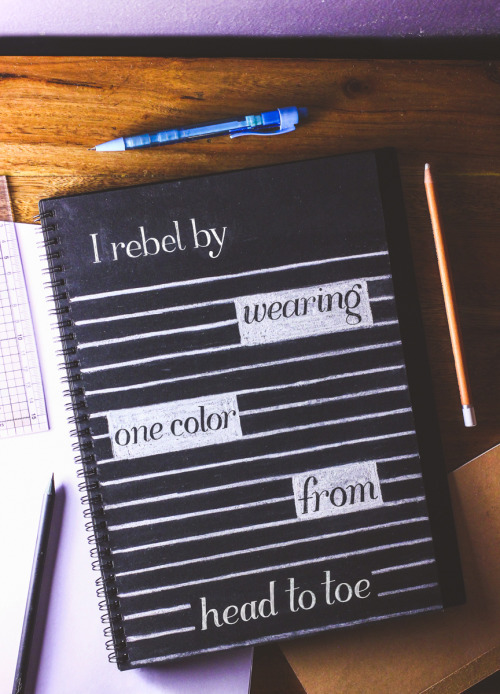 I rebel by
wearing
one color
from
head to toe